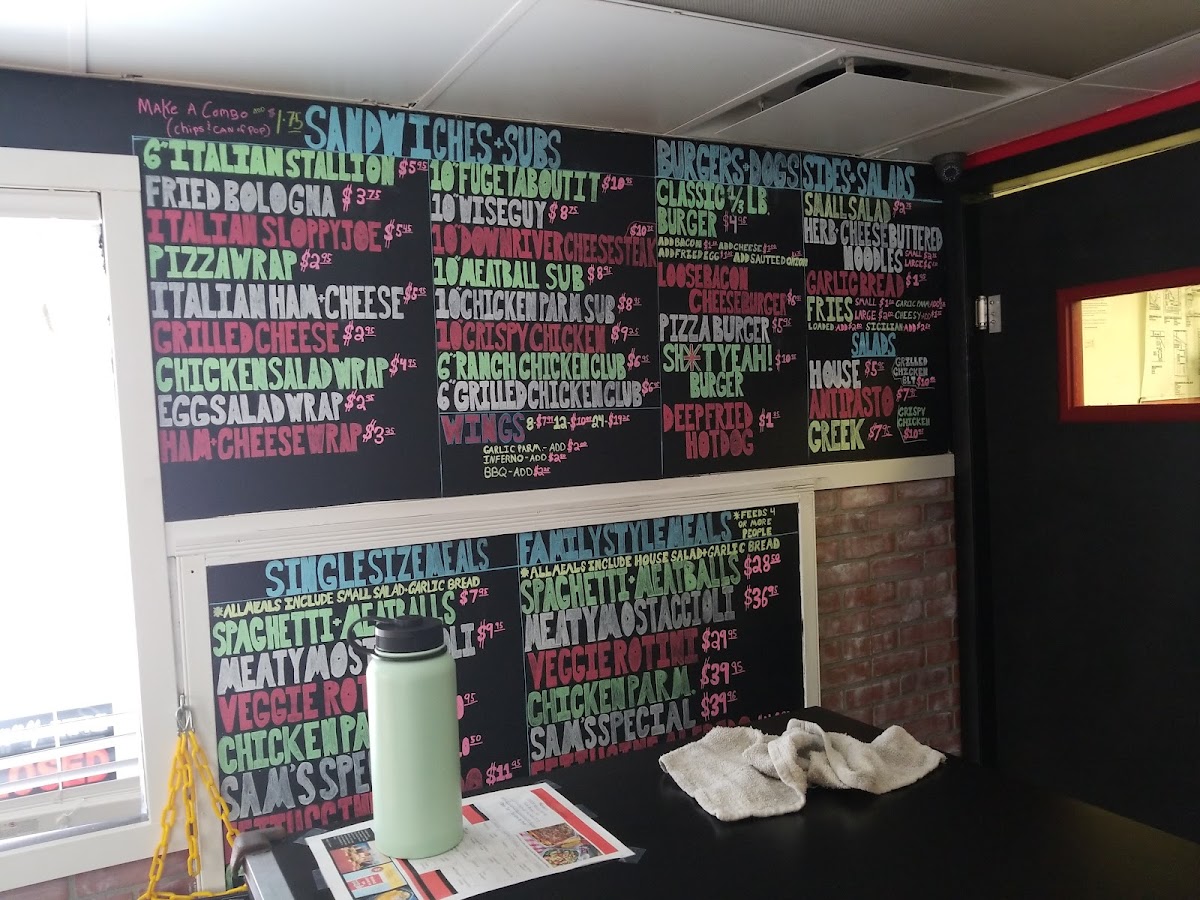 Make A Combo AND $1.75
(chips & can of pop)
SANDWICHES + SUBS
6" ITALIAN STALLION $5.95
FRIED BOLOGNA $3.75
ITALIAN SLOPPY JOE $5.45
PIZZA WRAP $2.95
ITALIAN HAM + CHEESE
GRILLED CHEESE $2.95
CHICKEN SALAD WRAP $4.95
EGG SALAD WRAP $2.95
HAM + CHEESE WRAP $3.25
10" FUGETABOUTIT $10.95
10" WISEGUY $8.75
10" DOWNRIVER CHEESESTEAK
10" MEATBALL SUB $8.95
10" CHICKEN PARM SUB
10" CRISPY CHICKEN
6" RANCH CHICKEN CLUB
6" GRILLED CHICKEN CLUB
WINGS 8-$7.95 12-$10.95 24-$19.25
GARLIC PARM - ADD $2.00
INFERNO - ADD $2.00
BBQ - ADD $2.00
BURGERS + DOGS
CLASSIC 1/3 LB.
BURGER $4.95
ADD BACON ADD CHEESE
ADD FRIED EGG ADD SAUTEED ONION
LOOSE BACON
CHEESEBURGER
PIZZA BURGER $5.95
SH*T YEAH!
BURGER
DEEP FRIED
HOT DOG
SIDES + SALADS
SMALL SALAD
HERB + CHEESE BUTTERED
NOODLES SMALL
LARGE
GARLIC BREAD
FRIES SMALL GARLIC PARM
LARGE CHEESY ADD
LOADED ADD SICILIAN ADD
SALADS
HOUSE
GRILLED
CHICKEN
BLT
ANTIPASTO
GREEK $7.95
CRISPY
CHICKEN
SINGLE SIZE MEALS
*ALL MEALS INCLUDE SMALL SALAD + GARLIC BREAD
SPAGHETTI + MEATBALLS $7.95
MEATY MOS LI $9.95
VEGGIE ROT
CHICKEN PA
SAM'S SPE $11.95
FETTUCCINE
FAMILY STYLE MEALS
*FEEDS 4
OR MORE
PEOPLE
*ALL MEALS INCLUDE HOUSE SALAD + GARLIC BREAD
SPAGHETTI + MEATBALLS $28.50
MEATY MOSTACCIOLI $36.95
VEGGIE ROTINI $29.95
CHICKEN PARM. $39.95
SAM'S SPECIAL $39.95